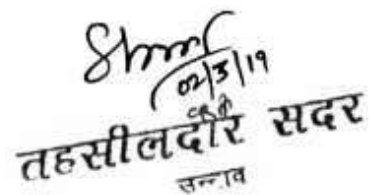 02/3/19
तहसीलदार सदर
उन्नाव